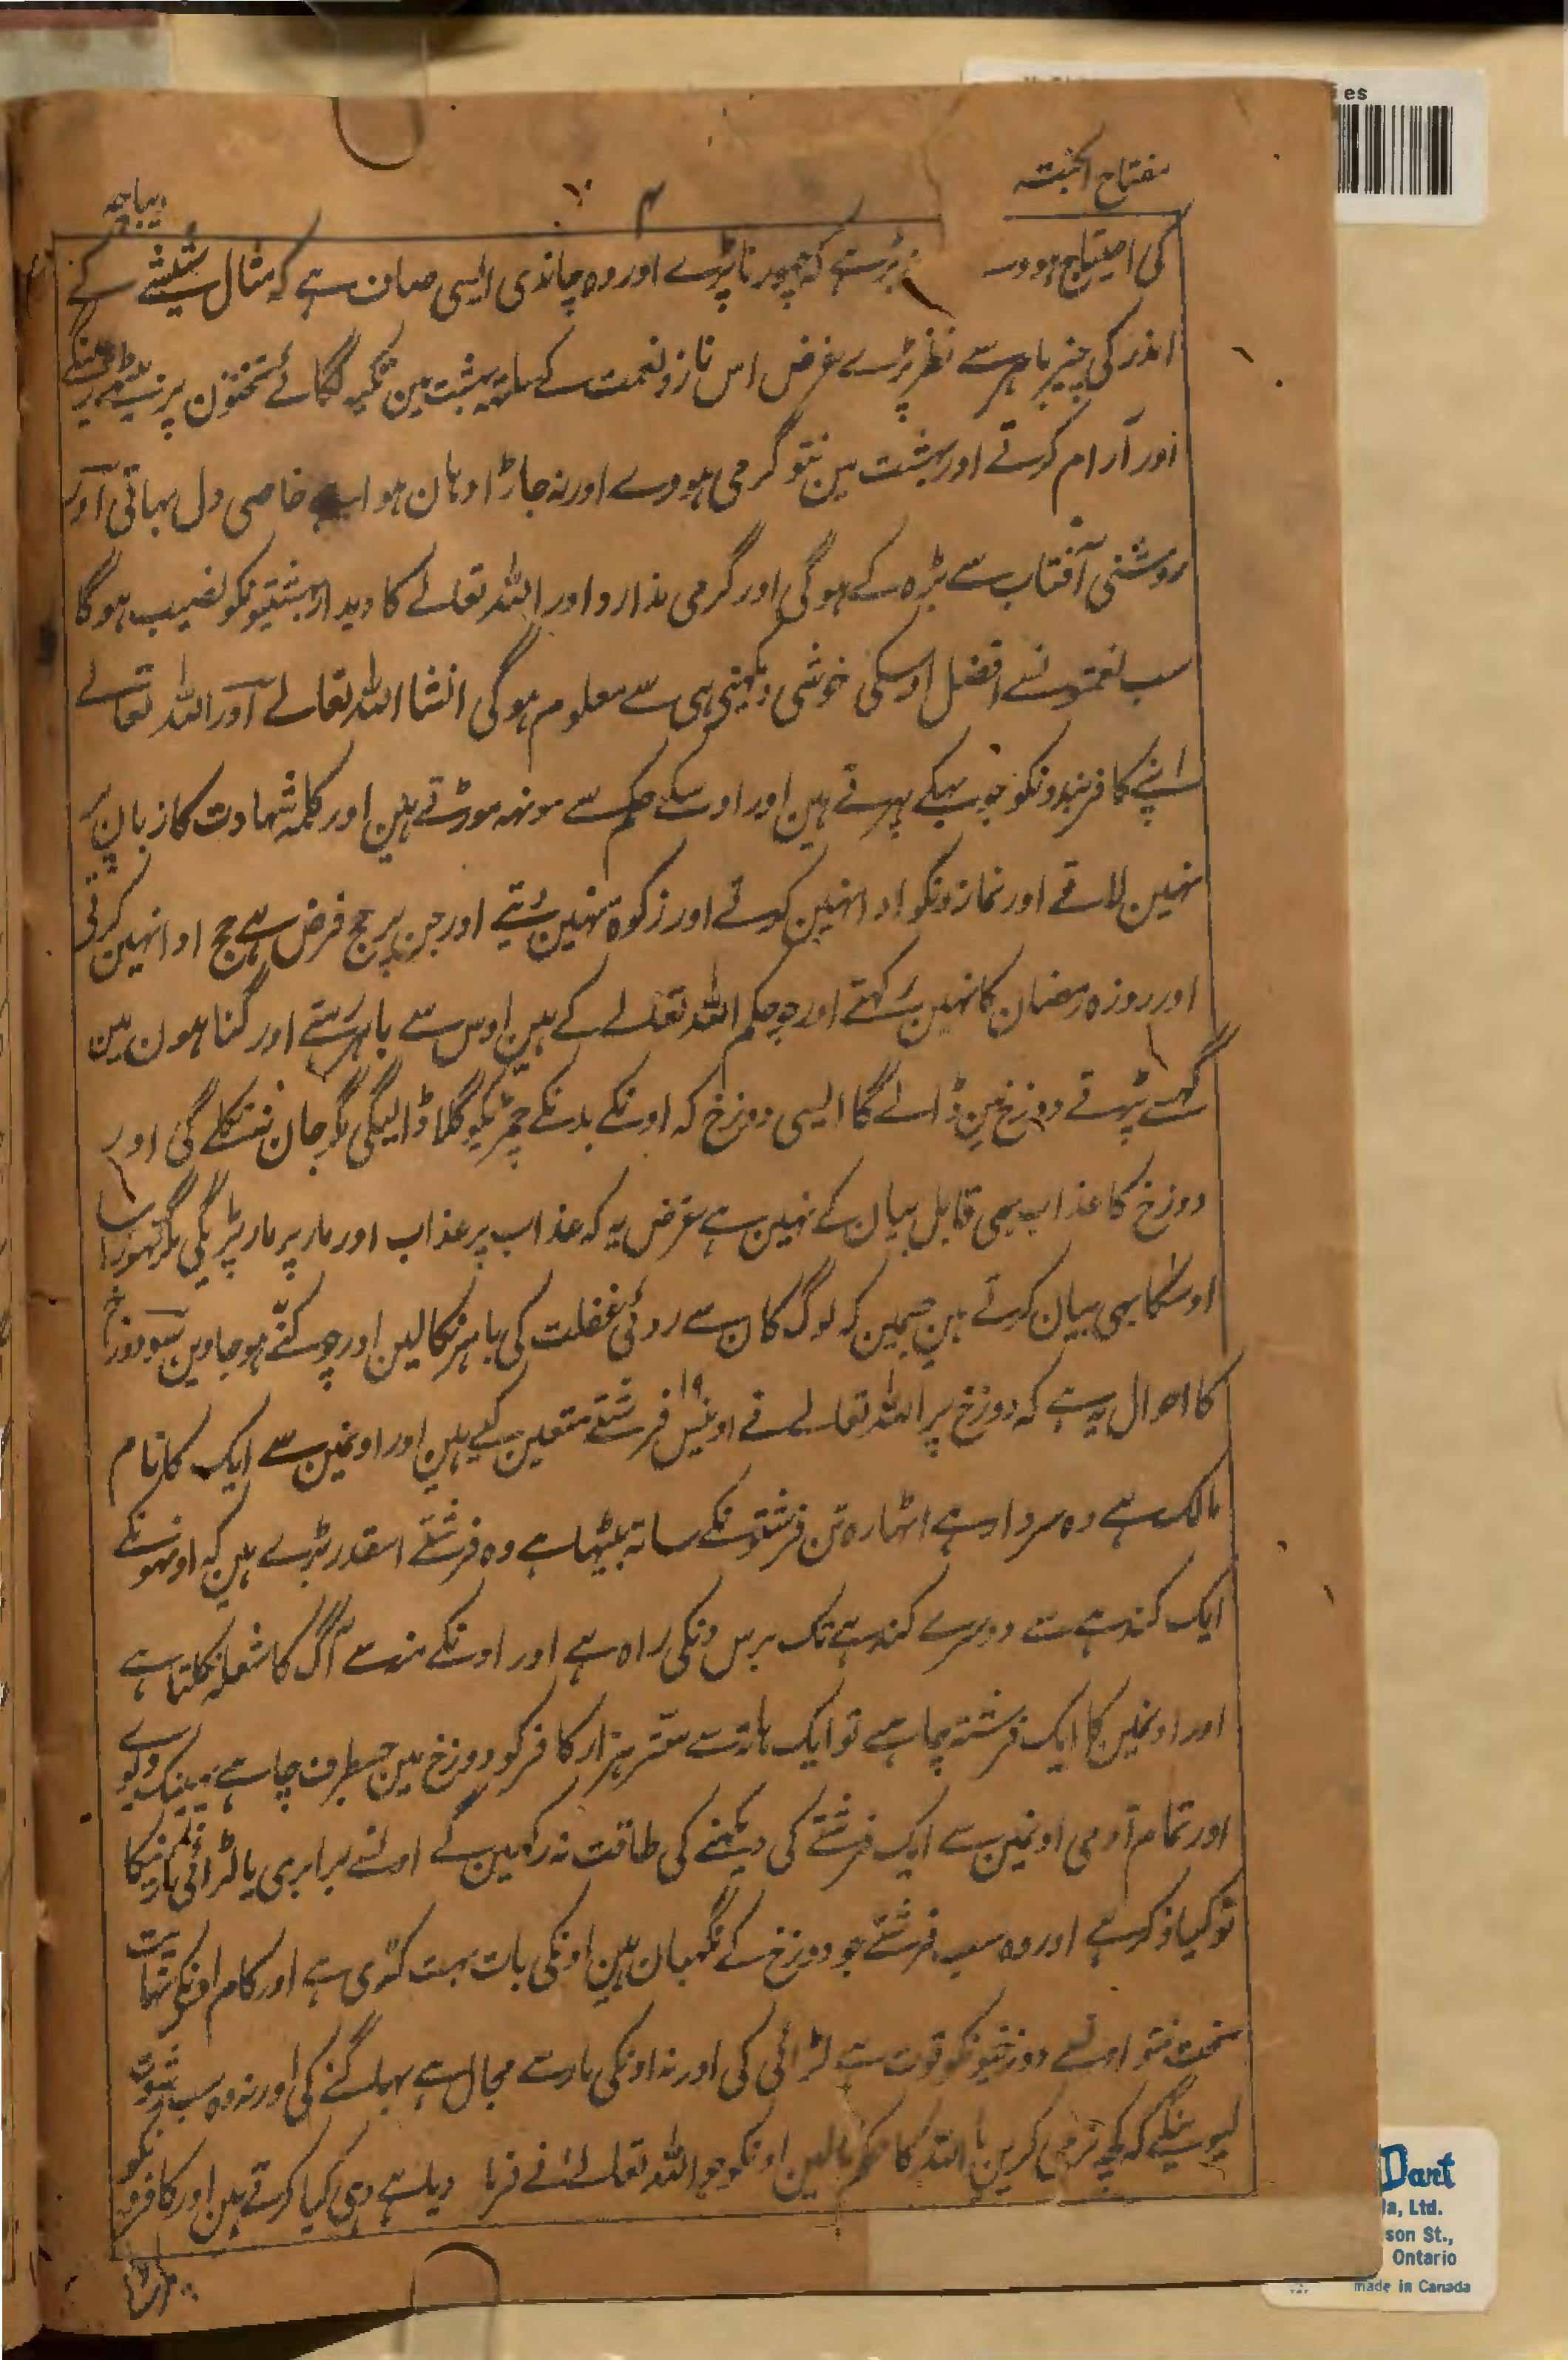 مفتاح الجنتہ
۴
دیباچہ
کی احتیاج ہووے کہ چھوڑنا پڑے اور وہ چاندی ایسی صاف ہے کہ مثال شیشے کے
اندر کی چیز باہر سے نظر پڑے غرض اس ناز و نعمت کے ساتہ بہشت مین تکیہ لگائے تختون پر بیٹھے رہینگے
اور آرام کرتے اور بہشت مین نتو گرمی ہووے اور نہ جاڑا وہان ہوا ہے خاصی دل بہاتی اور
روشنی آفتاب سے بڑہ کے ہوگی اور گرمی ندارد اور اللہ تعالے کا دیدار بہشتیونکو نصیب ہوگا
سب نعمتونسے افضل اوسکی خوشی دیکہنی ہی سے معلوم ہوگی انشا اللہ تعالے اور اللہ تعالے
اپنے کافر بندونکو جو بہکے پہرتے ہین اور اوسکے حکم سے مونہہ موڑتے ہین اور کلمہ شہادت کا زبان پر
نہین لاتے اور نمازونکو ادا نہین کرتے اور زکوۃ نہین دیتے اور جن پر حج فرض ہے حج ادا نہین کرتی
اور روزہ رمضان کا نہین رکہتے اور جو حکم اللہ تعالے کے ہین اوس سے باہر رہتے اور گناہون مین
گہسے پڑتے دوزخ مین ڈالے گا ایسی دوزخ کہ اونکے بدنکے چمڑیکو گلا ڈالیگی مگر جان ننکلے گی اور
دوزخ کا عذاب بھی قابل بیان کے نہین ہے غرض یہ کہ عذاب پر عذاب اور مار پر مار پڑیگی مگر تہوڑا سا
اوسکا بھی بیان کرتے ہین جسمین کہ لوگ کان سے روئی غفلت کی باہر نکالین اور چوکنّے ہو جاوین سو دوزخ
کا احوال یہ ہے کہ دوزخ پر اللہ تعالے نے اونیس ۱۹ فرشتے متعین کیے ہین اور اونمین سے ایک کا نام
مالک ہے وہ سردار ہے اٹہارہ تن فرشتونکے ساتہ بیٹہا ہے وہ فرشتے اسقدر بڑے ہین کہ اونہونکے
ایک کندہے سے دوسرے کندہے تک برس دنکی راہ ہے اور اونکے منہ سے آگ کا شعلہ نکلتا ہے
اور اونمین کا ایک فرشتہ چاہے تو ایک ہاتہ سے ستّر ہزار کافر کو دوزخ مین جسطرف چاہے پہینک دیوے
اور تمام آدمی اونمین سے ایک فرشتے کی دیکہنے کی طاقت نہ رکہین گے اونسے برابری یا لڑائی کرنیکا
تو کیا ذکر ہے اور وہ سب فرشتے جو دوزخ کے نگہبان ہین اونکی بات بہت کڑی ہے اور کام اونکے نہایت
سخت نتو اونسے دوزخیونکو قوت ہے لڑائی کی اور نہ اونکی مار سے مجال ہے بہاگنے کی اور نہ وہ سب رشوت
لیوینگے کہ کچہ نرمی کرین یا اللہ کا حکم ٹالین اونکو جو اللہ تعالے نے فرما دیا ہے وہی کیا کرتے ہین اور کافرونکو
es
Dant
la, Ltd.
son St.,
Ontario
made in Canada